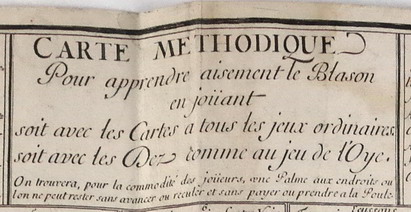 CARTE METHODIQUE
Pour apprendre aisement le Blason
en joüant
soit avec les Cartes a tous les jeux ordinaires,
soit avec les Dez comme au jeu de l'Oye.
On trouvera, pour la commodité des joüeurs, vne Palme aux endroits ou
lon ne peut rester sans avancer ou reculer et sans payer ou prendre a la Poule.